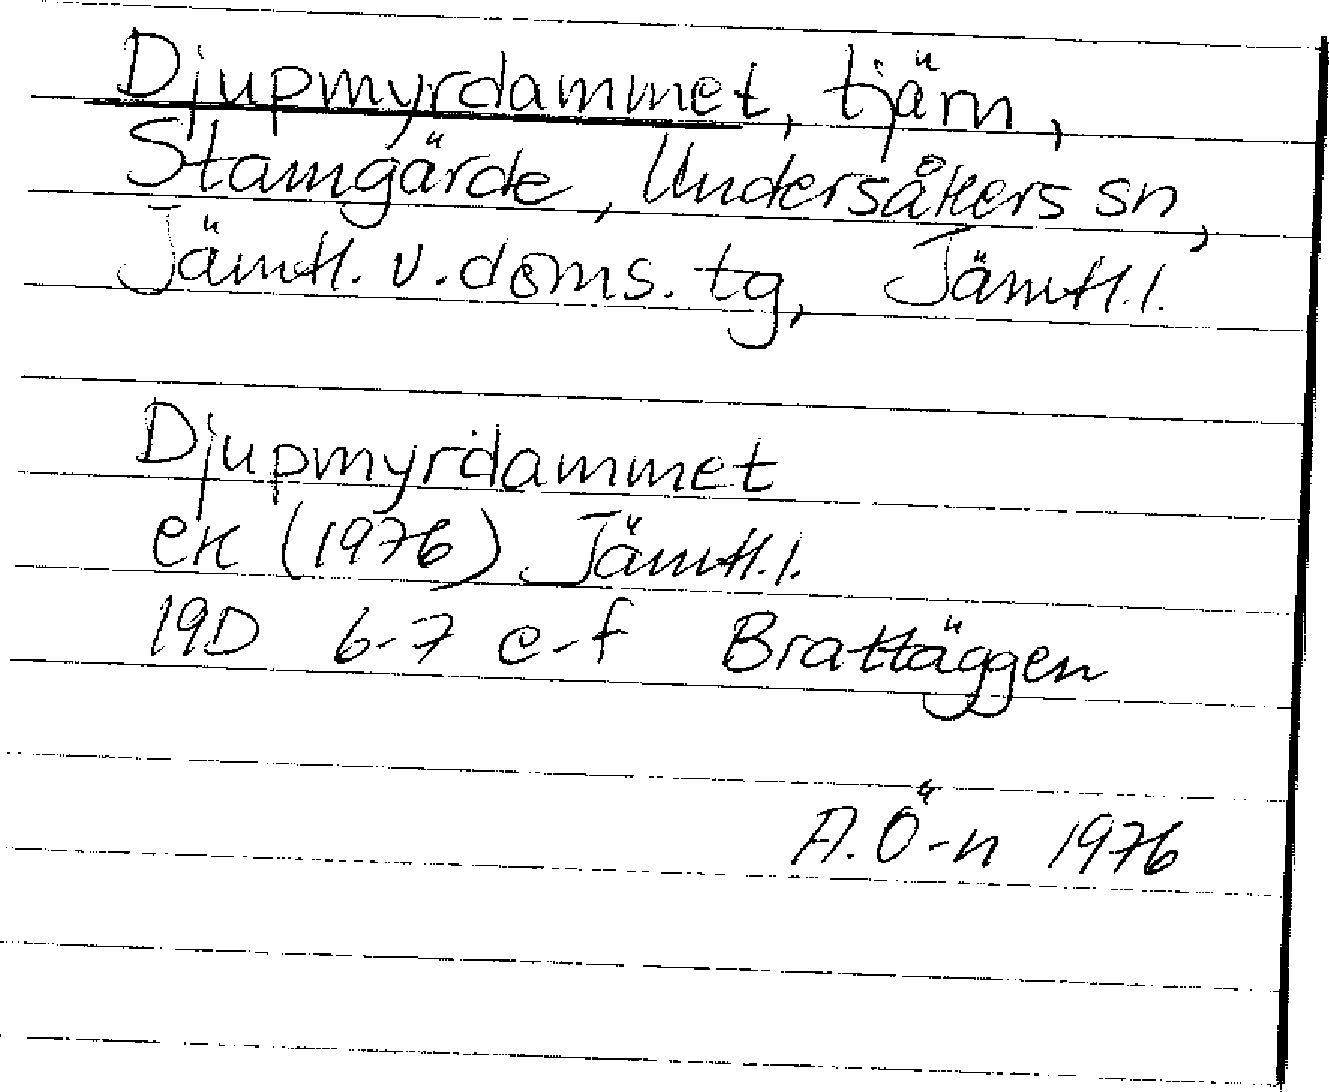 Djupmyrdammet, tjärn,
Stamgärde, Undersåkers sn,
Jämtl. v. doms. tg, Jämtl.l.
Djupmyrdammet
ek (1976) Jämtl.l.
19D 6-7 e-f Brattäggen
A.Ö-n 1976